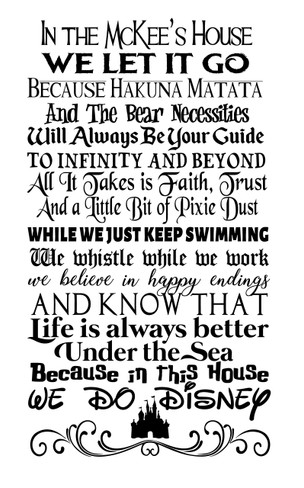 In the McKee's House
WE LET IT GO
Because Hakuna Matata
And The Bear Necessities
Will Always Be Your Guide
TO INFINITY AND BEYOND
All It Takes is Faith, Trust
And a Little Bit of Pixie Dust
WHILE WE JUST KEEP SWIMMING
We whistle while we work
we believe in happy endings
AND KNOW THAT
Life is always better
Under the Sea
Because in this House
WE DO DISNEY